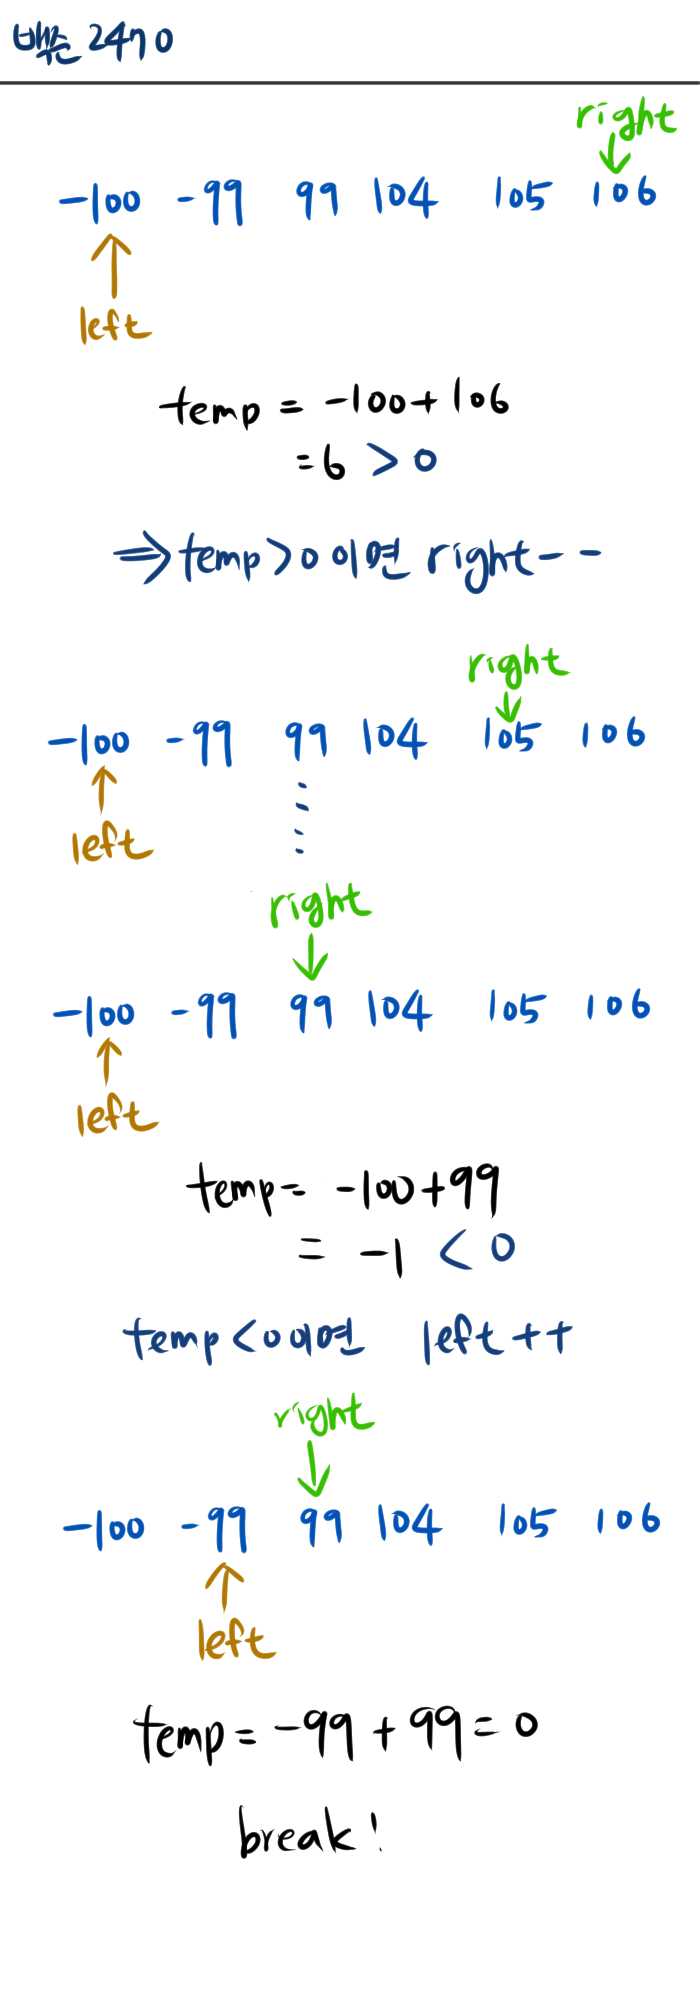 백준 2470
right
↓
-100 -99 99 104 105 106
↑
left
temp = -100+106
=6 > 0
⇒temp>0이면 right--
right
↓
-100 -99 99 104 105 106
↑
left
right
↓
-100 -99 99 104 105 106
↑
left
temp= -100+99
= -1 < 0
temp<0이면 left++
right
↓
-100 -99 99 104 105 106
↑
left
temp= -99+99=0
break!